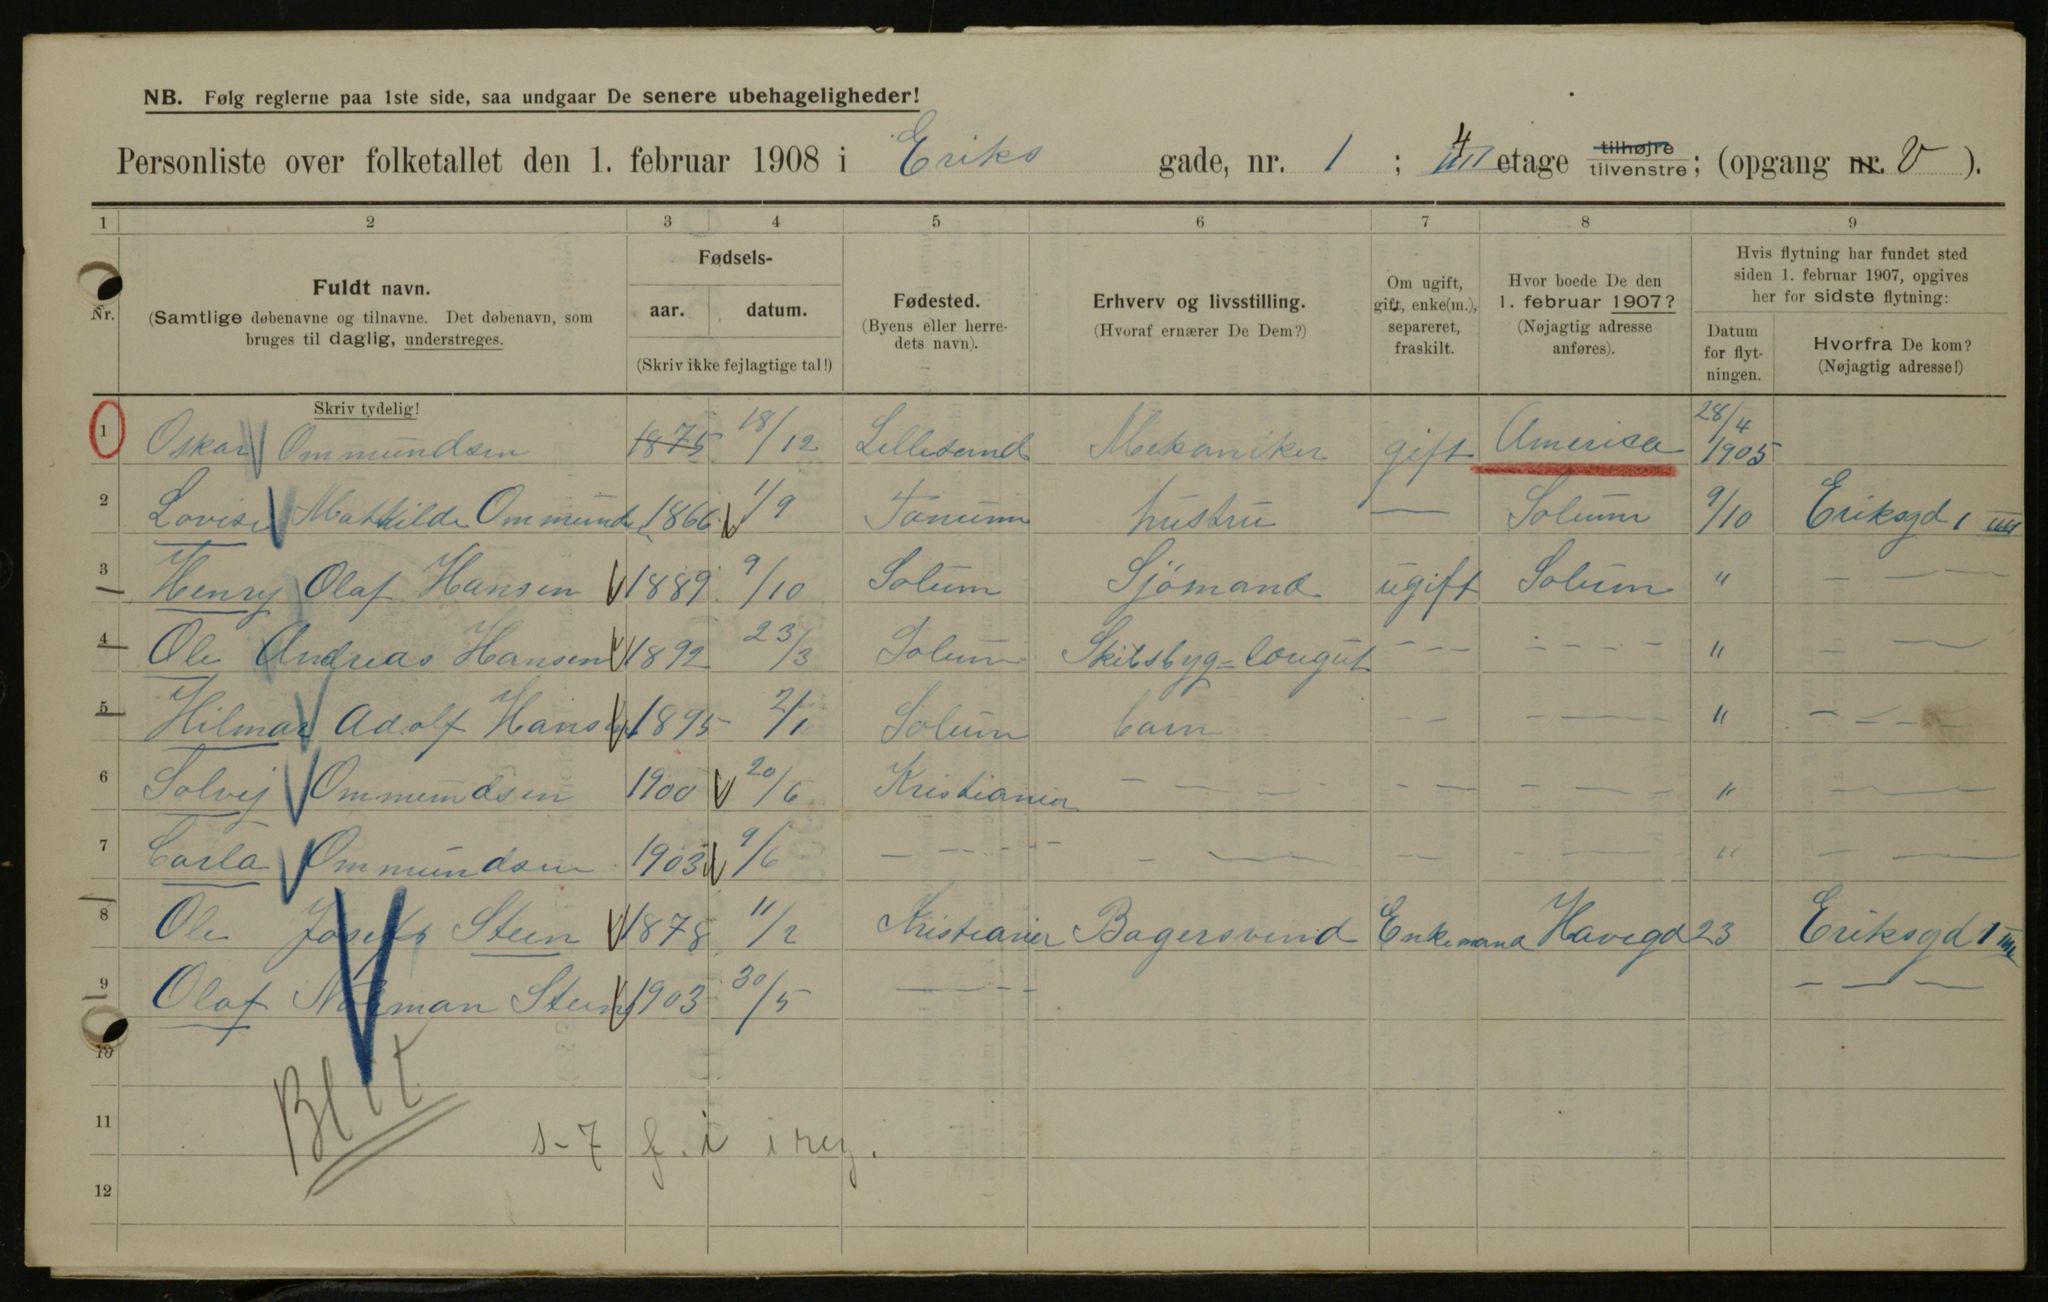 NB. Følg reglerne paa 1ste side, saa undgaar De senere ubehageligheder!
Personliste over folketallet den 1. februar 1908 i Eriks gade, nr. 1 ; 4 IIII etage tilhøjre tilvenstre; (opgang nr. V ).
1 2 3 4 5 6 7 8 9
Nr.
Fuldt navn.
(Samtlige døbenavne og tilnavne. Det døbenavn, som
bruges til daglig, understreges.
Fødsels-
aar. datum.
(Skriv ikke fejlagtige tal!)
Fødested.
(Byens eller herre-
dets navn).
Erhverv og livsstilling.
(Hvoraf ernærer De Dem?)
Om ugift,
gift, enke(m.),
separeret,
fraskilt.
Hvor boede De den
1. februar 1907?
(Nøjagtig adresse
anføres).
Hvis flytning har fundet sted
siden 1. februar 1907, opgives
her for sidste flytning:
Datum
for flyt-
ningen.
Hvorfra De kom?
(Nøjagtig adresse!)
Skriv tydelig!
1 Oskar Ommundsen 1875 18/12 Lillesand Mekaniker gift America 28/4 1905
2 Lovise Mathilde Ommunds 1866 1/9 Tanum hustru — Solum 9/10 Eriksgd 1 IIII
3 Henry Olaf Hansen 1889 9/10 Solum Sjömand ugift Solum " — — —
4 Ole Andreas Hansen 1892 23/3 Solum Skibsbyg= - - - - - - - " — —
5 Hilmar Adolf Hansen 1895 2/1 Solum barn - - - — - " - - - -
6 Solvej Ommundsen 1900 20/6 Kristiania - — - - - - - - - - " — —
7 Carla Ommundsen 1903 9/6 - - - - - - — - - - — " - —
8 Ole Josef Steen 1878 11/2 Kristiania Bagersvend Enkemand Havegd 23 Eriksgd 1 IIII
9 Olaf Norman Steen 1903 30/5 — - - - — —
10
11
12
Blit
1-7 f. i i reg.